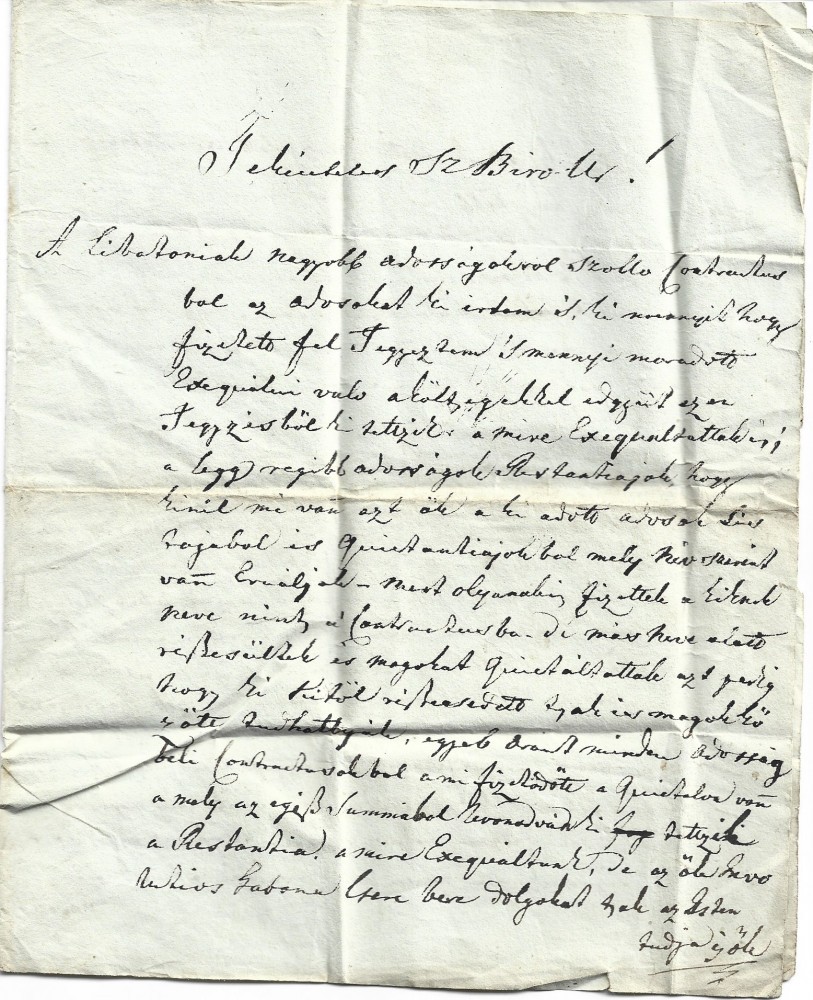 Tekintetes Sz Biro Ur!
A Libetoniak nagyobb adosságokrol szollo Contractus
bol az adosokat ki irtam is, ki mennyit hogy
fizetett fel Jegyeztem is mennyi maradott
Exequálni valo a költzégekkel edgyüt ezen
Jegyzésböl ki tettzik a mire Exequaltattak is;
a legg regibb adosságok Restantiajok, hogy
kinél mi van azt ök a ki adott adosok
bol és Quietantiajokbol mely név szerint
van - mert olyanok is fizettek a kiknek
neve nints a Contractusba de más neve alatt
részesültek és magokat Quietáltattak azt pedig
hogy ki kitöl részesedett tsak is magok kö
zött tudhattyák, egyéb aránt minden adosság
beli Contractusokbol a mi fizetödött a Quietalva van
a mely az egész Summábol levonodván ki tettzik
a Restantia, a mire Exequáltunk, de az ök
Gabona Csere bere dolgokat tsak az Isten
tudja és ök